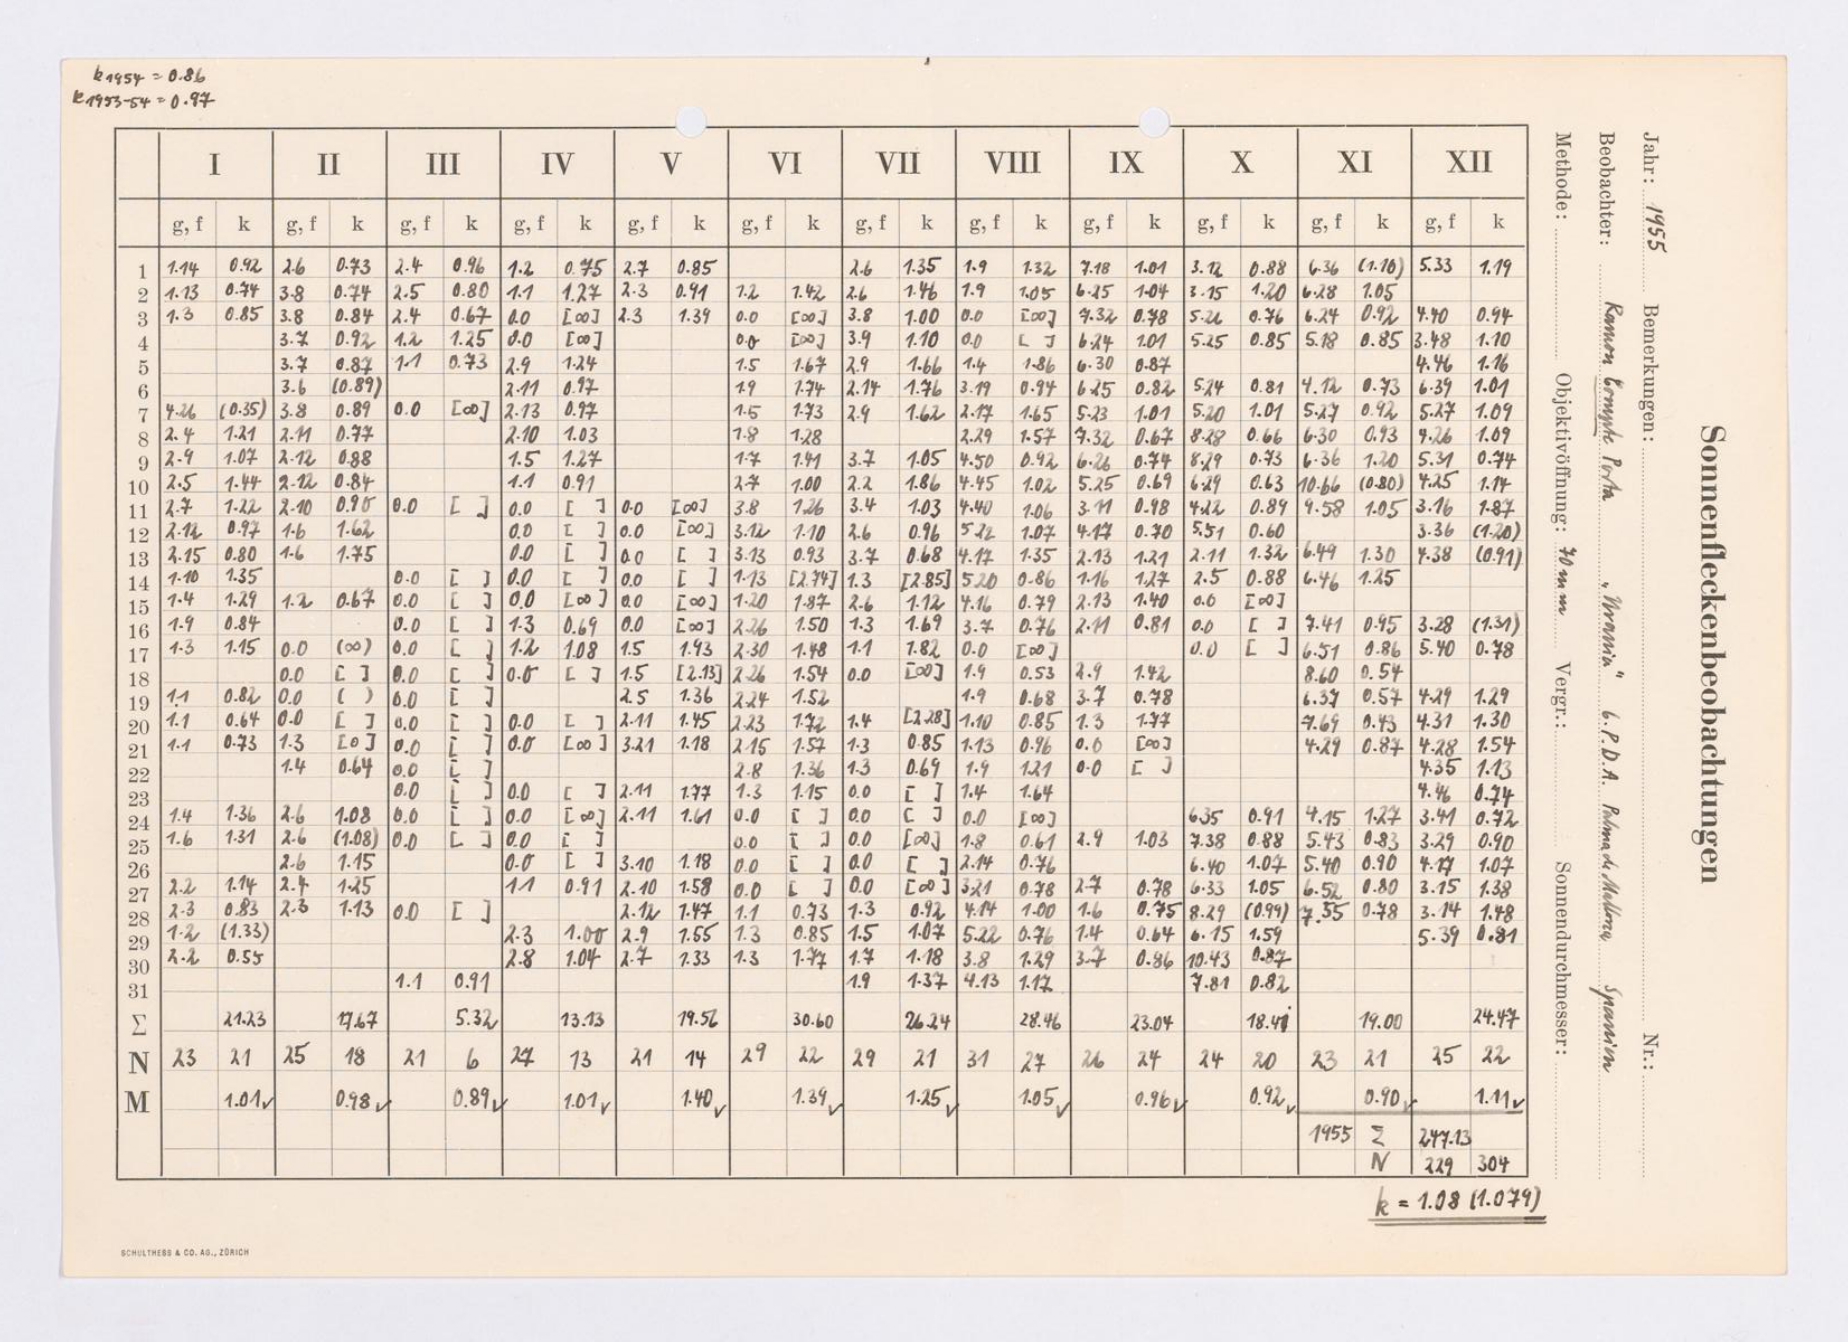 k 1954 = 0.86
k 1953-54 = 0.97
Sonnenfleckenbeobachtungen
Jahr: 1955 Bemerkungen: Nr.:
Beobachter: Ramon Compte Porta "Urania" 6. P.D.A. Palma de Mallorca Spanien
Methode: Objektivöffnung: 70 mm Vergr.: Sonnendurchmesser:
I II III IV V VI VII VIII IX X XI XII
g, f k g, f k g, f k g, f k g, f k g, f k g, f k g, f k g, f k g, f k g, f k g, f k
1 1.14 0.92 2.6 0.73 2.4 0.96 1.2 0.75 2.7 0.85 2.6 1.35 1.9 1.32 7.18 1.01 3.12 0.88 6.36 (1.10) 5.33 1.19
2 1.13 0.74 3.8 0.74 2.5 0.80 1.1 1.27 2.3 0.91 1.2 1.42 2.6 1.46 1.9 1.05 6.25 1.04 3.15 1.20 6.28 1.05
3 1.3 0.85 3.8 0.84 2.4 0.67 0.0 [∞] 2.3 1.39 0.0 [∞] 3.8 1.00 0.0 [∞] 7.32 0.78 5.26 0.76 6.24 0.92 4.40 0.94
4 3.7 0.92 1.2 1.25 0.0 [∞] 0.0 [∞] 3.9 1.10 0.0 [ ] 6.24 1.01 5.25 0.85 5.18 0.85 3.48 1.10
5 3.7 0.87 1.1 0.73 2.9 1.24 1.5 1.67 2.9 1.66 1.4 1.86 6.30 0.87 4.46 1.16
6 3.6 (0.89) 2.11 0.97 1.9 1.74 2.14 1.76 3.19 0.94 6.25 0.82 5.24 0.81 4.12 0.73 6.39 1.01
7 4.26 (0.35) 3.8 0.89 0.0 [∞] 2.13 0.97 1.5 1.73 2.9 1.62 2.17 1.65 5.23 1.01 5.20 1.01 5.27 0.92 5.27 1.09
8 2.4 1.21 2.11 0.77 2.10 1.03 1.8 1.28 2.29 1.57 7.32 0.67 8.28 0.66 6.30 0.93 4.26 1.09
9 2.9 1.07 2.12 0.88 1.5 1.27 1.7 1.41 3.7 1.05 4.50 0.92 6.26 0.74 8.29 0.73 6.36 1.20 5.31 0.74
10 2.5 1.44 2.12 0.84 1.1 0.91 2.7 1.00 2.2 1.86 4.45 1.02 5.25 0.69 6.29 0.63 10.66 (0.80) 4.25 1.14
11 2.7 1.22 2.10 0.90 0.0 [ ] 0.0 [ ] 0.0 [∞] 3.8 1.26 3.4 1.03 4.40 1.06 3.11 0.98 4.22 0.89 9.58 1.05 3.16 1.87
12 2.12 0.97 1.6 1.62 0.0 [ ] 0.0 [∞] 3.12 1.10 2.6 0.96 5.22 1.07 4.17 0.70 5.51 0.60 3.36 (1.20)
13 2.15 0.80 1.6 1.75 0.0 [ ] 0.0 [ ] 3.13 0.93 3.7 0.68 4.17 1.35 2.13 1.21 2.11 1.32 6.49 1.30 4.38 (0.91)
14 1.10 1.35 0.0 [ ] 0.0 [ ] 0.0 [ ] 1.13 [2.74] 1.3 [2.85] 5.20 0.86 1.16 1.27 2.5 0.88 6.46 1.25
15 1.4 1.29 1.2 0.67 0.0 [ ] 0.0 [∞] 0.0 [∞] 1.20 1.87 2.6 1.12 4.16 0.79 2.13 1.40 0.0 [∞]
16 1.9 0.84 0.0 [ ] 1.3 0.69 0.0 [∞] 2.26 1.50 1.3 1.69 3.7 0.76 2.11 0.81 0.0 [ ] 7.41 0.95 3.28 (1.31)
17 1.3 1.15 0.0 (∞) 0.0 [ ] 1.2 1.08 1.5 1.93 2.30 1.48 1.1 1.82 0.0 [∞] 0.0 [ ] 6.51 0.86 5.40 0.78
18 0.0 [ ] 0.0 [ ] 0.0 [ ] 1.5 [2.13] 2.26 1.54 0.0 [∞] 1.9 0.53 2.9 1.42 8.60 0.54
19 1.1 0.82 0.0 ( ) 0.0 [ ] 2.5 1.36 2.24 1.52 1.9 0.68 3.7 0.78 6.37 0.57 4.29 1.29
20 1.1 0.64 0.0 [ ] 0.0 [ ] 0.0 [ ] 2.11 1.45 2.23 1.72 1.4 [2.28] 1.10 0.85 1.3 1.77 7.69 0.43 4.31 1.30
21 1.1 0.73 1.3 [0] 0.0 [ ] 0.0 [∞] 3.21 1.18 2.15 1.57 1.3 0.85 1.13 0.96 0.0 [∞] 4.29 0.87 4.28 1.54
22 1.4 0.64 0.0 [ ] 2.8 1.36 1.3 0.69 1.9 1.21 0.0 [ ] 4.35 1.13
23 0.0 [ ] 0.0 [ ] 2.11 1.77 1.3 1.15 0.0 [ ] 1.4 1.64 4.46 0.74
24 1.4 1.36 2.6 1.08 0.0 [ ] 0.0 [∞] 2.11 1.61 0.0 [ ] 0.0 [ ] 0.0 [∞] 6.35 0.91 4.15 1.27 3.41 0.72
25 1.6 1.31 2.6 (1.08) 0.0 [ ] 0.0 [ ] 0.0 [ ] 0.0 [∞] 1.8 0.61 2.9 1.03 7.38 0.88 5.43 0.83 3.29 0.90
26 2.6 1.15 0.0 [ ] 3.10 1.18 0.0 [ ] 0.0 [ ] 2.14 0.76 6.40 1.07 5.40 0.90 4.17 1.07
27 2.2 1.14 2.4 1.25 1.1 0.91 2.10 1.58 0.0 [ ] 0.0 [∞] 3.21 0.78 2.7 0.78 6.33 1.05 6.52 0.80 3.15 1.38
28 2.3 0.83 2.3 1.13 0.0 [ ] 2.12 1.47 1.1 0.73 1.3 0.92 4.14 1.00 1.6 0.75 8.29 (0.99) 7.55 0.78 3.14 1.48
29 1.2 (1.33) 2.3 1.00 2.9 1.55 1.3 0.85 1.5 1.07 5.22 0.76 1.4 0.64 6.15 1.59 5.39 0.81
30 2.2 0.55 2.8 1.04 2.7 1.33 1.3 1.77 1.7 1.18 3.8 1.29 3.7 0.86 10.43 0.87
31 1.1 0.91 1.9 1.37 4.13 1.17 7.81 0.82
Σ 21.23 17.67 5.32 13.13 19.56 30.60 26.24 28.46 23.04 18.41 19.00 24.47
N 23 21 25 18 21 6 27 13 21 14 29 22 29 21 31 27 26 24 24 20 23 21 25 22
M 1.01✓ 0.98✓ 0.89✓ 1.01✓ 1.40✓ 1.39✓ 1.25✓ 1.05✓ 0.96✓ 0.92✓ 0.90✓ 1.11✓
1955 Σ 247.13
N 229 304
k = 1.08 (1.079)
SCHULTHESS & CO. AG., ZÜRICH